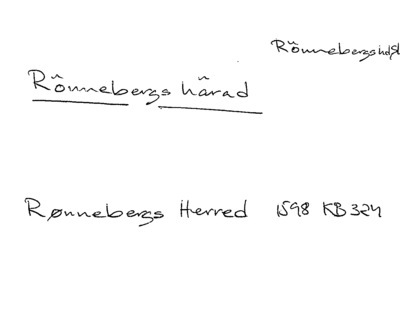 Rönnebergs hd, Sk
Rönnebergs härad
Rønnebergs Herred 1598 KB 324